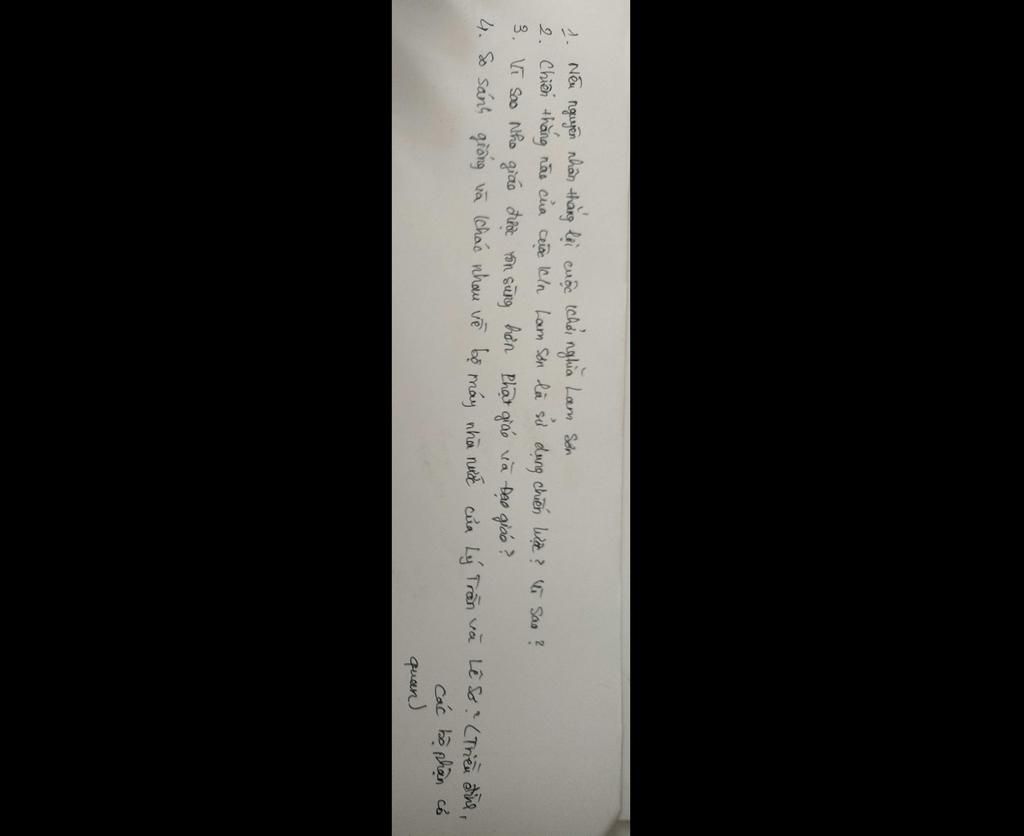 1. Nêu nguyên nhân thắng lợi cuộc khởi nghĩa Lam Sơn
2. Chiến thắng nào của cuộc k/n Lam Sơn là sử dụng chiến lược? Vì sao?
3. Vì sao Nho giáo được tôn sùng hơn Phật giáo và Đạo giáo?
4. So sánh giống và khác nhau về bộ máy nhà nước của Lý Trần và Lê Sơ? (Triều đình,
các bộ phận cơ
quan)